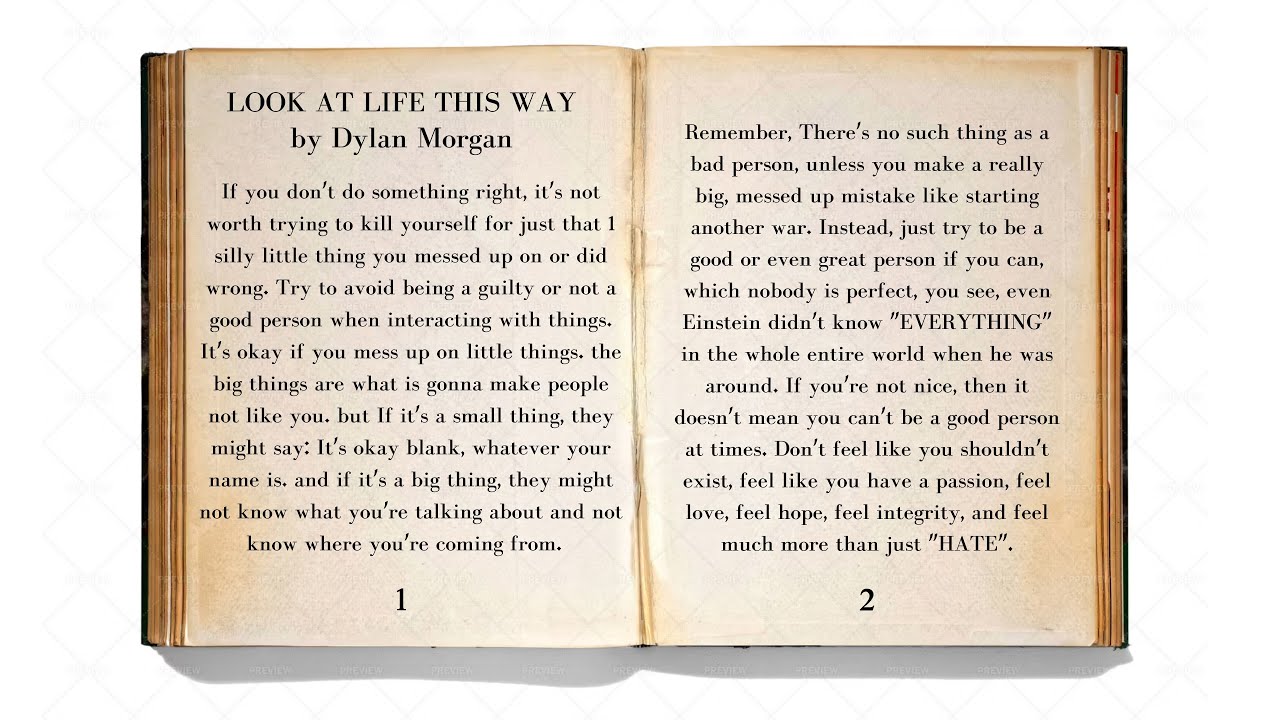 LOOK AT LIFE THIS WAY
by Dylan Morgan
If you don't do something right, it's not
worth trying to kill yourself for just that 1
silly little thing you messed up on or did
wrong. Try to avoid being a guilty or not a
good person when interacting with things.
It's okay if you mess up on little things. the
big things are what is gonna make people
not like you. but If it's a small thing, they
might say: It's okay blank, whatever your
name is. and if it's a big thing, they might
not know what you're talking about and not
know where you're coming from.
1
Remember, There's no such thing as a
bad person, unless you make a really
big, messed up mistake like starting
another war. Instead, just try to be a
good or even great person if you can,
which nobody is perfect, you see, even
Einstein didn't know "EVERYTHING"
in the whole entire world when he was
around. If you're not nice, then it
doesn't mean you can't be a good person
at times. Don't feel like you shouldn't
exist, feel like you have a passion, feel
love, feel hope, feel integrity, and feel
much more than just "HATE".
2
PREVIEW